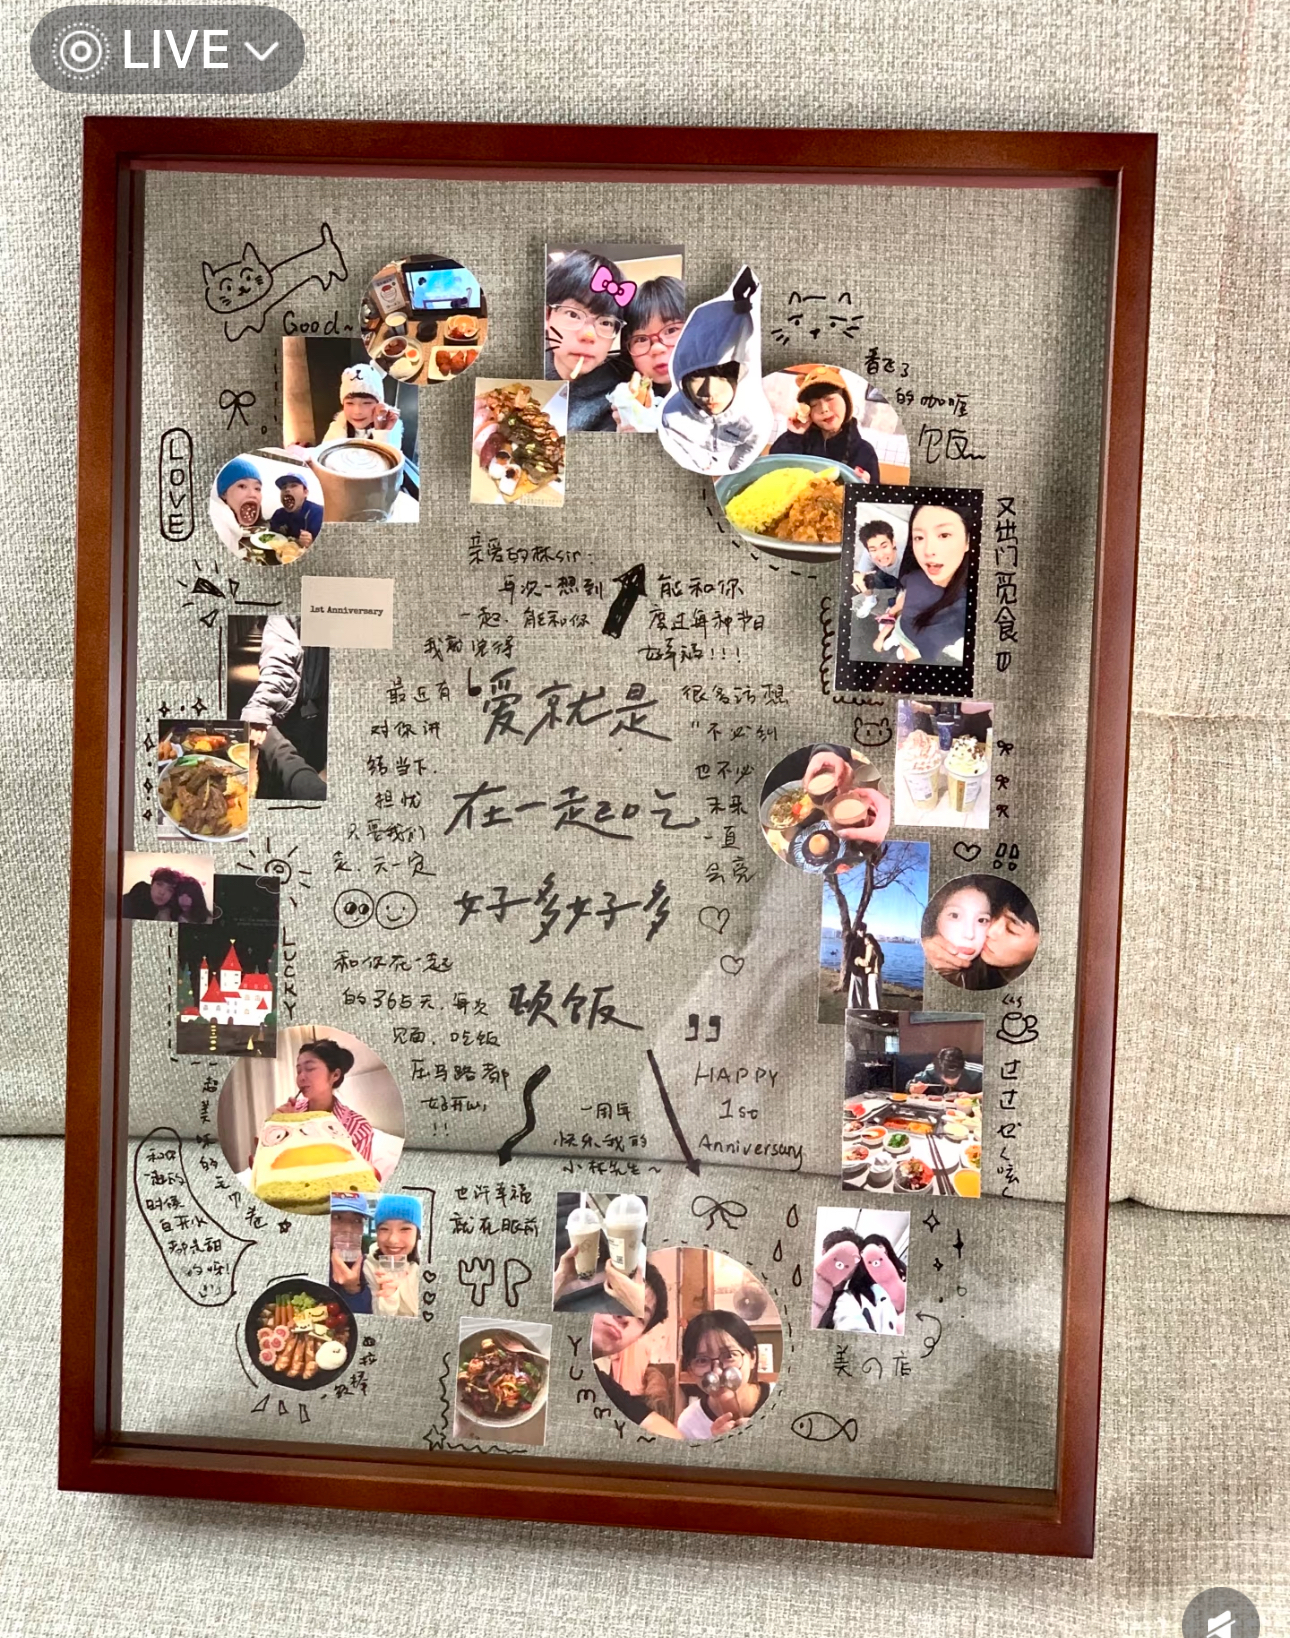 LIVE
Good~
LOVE
香飞了
的咖喱
饭~
又出门觅食
1st Anniversary
亲爱的林sir:
再次一想到
能和你
一起. 能和你
度过每种节日
我就觉得
好幸福!!!
最近有
很多话想
对你讲
"不必纠
结当下.
也不必
担忧
未来
只要我们
一直
走. 天一定
会亮
爱就是
在一起吃
好多好多
顿饭
"
LUCKY
和你在一起
的365天. 每次
见面. 吃饭
压马路都
好开心
!!
一周年
快乐我的
小林先生~
HAPPY
1st
Anniversary
超美味的毛巾卷
和你
一起的
时候
白开水
都是甜
的呀!
!!
也许幸福
就在眼前
YUMMY~
美の店